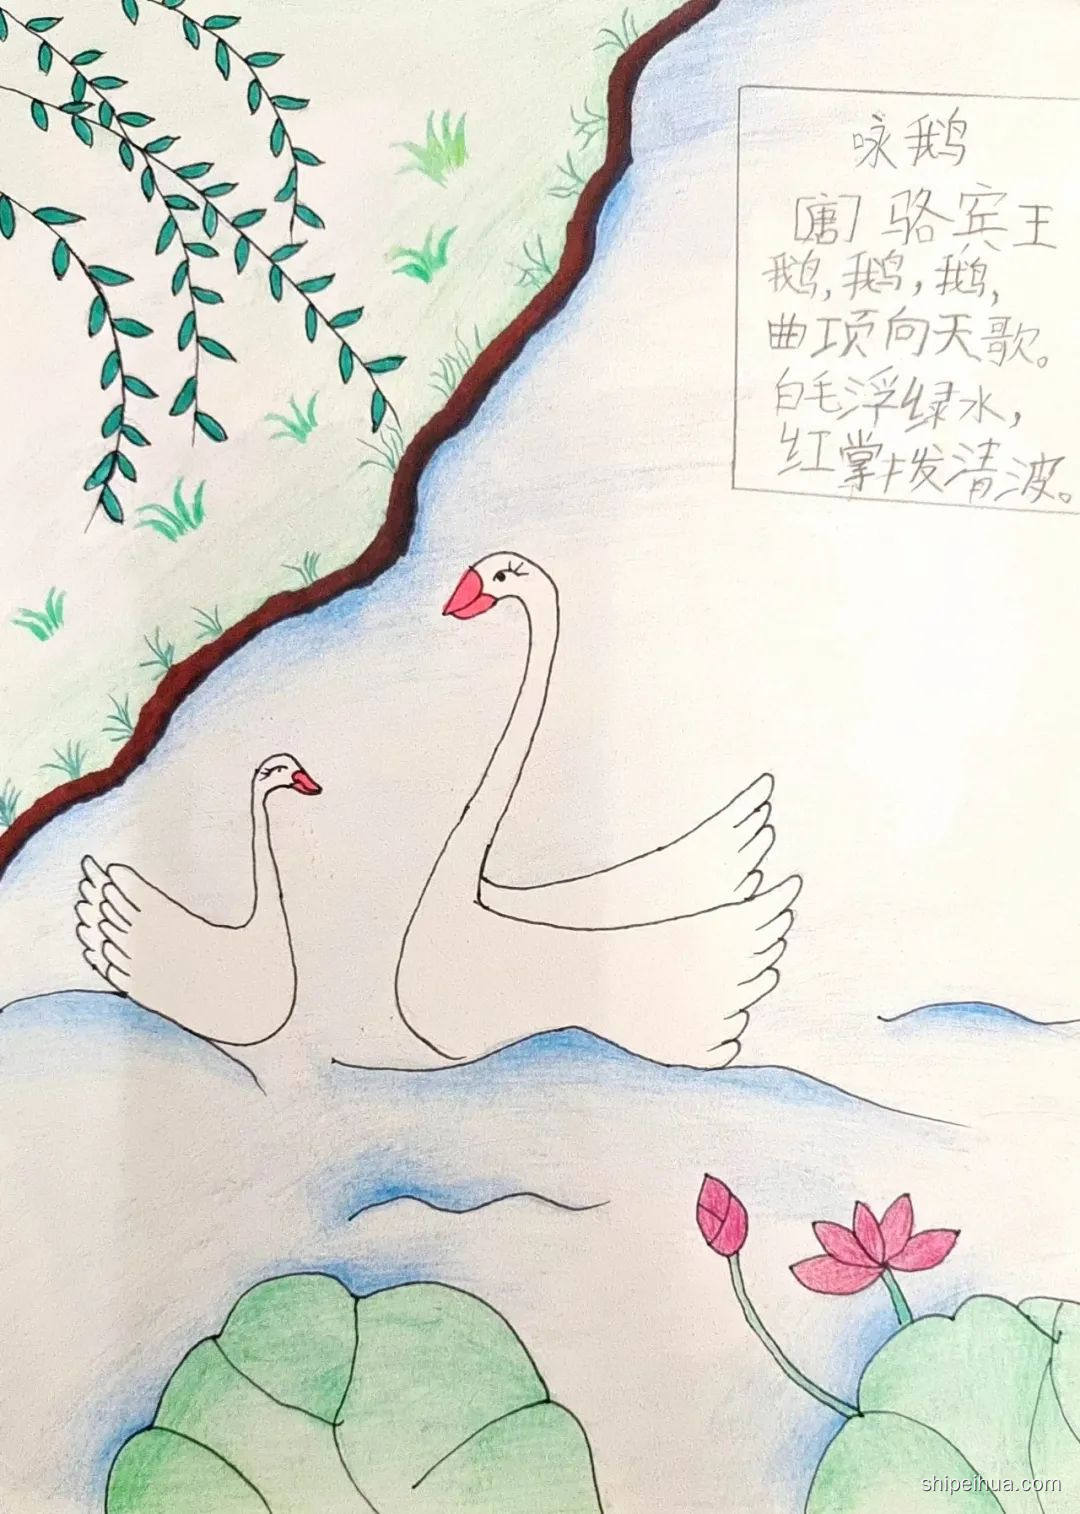 咏鹅
[唐] 骆宾王
鹅,鹅,鹅,
曲项向天歌。
白毛浮绿水,
红掌拨清波。
shipeihua.com